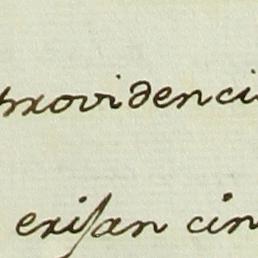 providenci
exisan cin